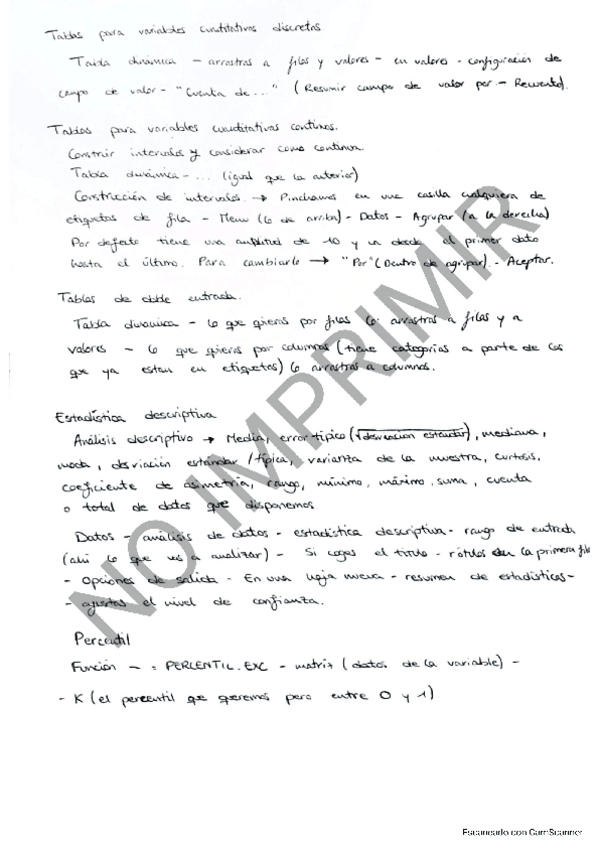 Tablas para variables cuantitativas discretas
Tabla dinámica - arrastras a filas y valores - en valores - configuración de
campo de valor - "Cuenta de..." (Resumir campo de valor por - Recuento).
Tablas para variables cuantitativas continuas.
Construir intervalos y considerar como continua.
Tabla dinámica - ... (igual que la anterior)
Construcción de intervalos → Pinchamos en una casilla cualquiera de
etiquetas de fila - Menu (lo de arriba) - Datos - Agrupar (a la derecha)
Por defecto tiene una amplitud de 10 y va desde el primer dato
hasta el último. Para cambiarlo → "Por" (Dentro de agrupar) - Aceptar.
Tablas de doble entrada.
Tabla dinamica - lo que quieras por filas lo arrastras a filas y a
valores - lo que quieras por columnas (tiene categorías a parte de las
que ya estan en etiquetas) lo arrastras a columnas.
Estadística descriptiva
Análisis descriptivo → Media, error típico (√desviacion estandar), mediana,
moda, desviación estándar / típica, varianza de la muestra, curtosis,
coeficiente de asimetría, rango, mínimo, máximo, suma, cuenta
o total de datos que disponemos.
Datos - análisis de datos - estadística descriptiva - rango de entrada
(ahi lo que vas a analizar) - Si coges el titulo - rótulos en la primera fila
- Opciones de salida - En una hoja nueva - resumen de estadísticas -
- ajustas el nivel de confianza.
Percentil
Función - = PERCENTIL.EXC - matriz (datos de la variable) -
- K (el percentil que queremos pero entre 0 y 1)
NO IMPRIMIR
Escaneado con CamScanner